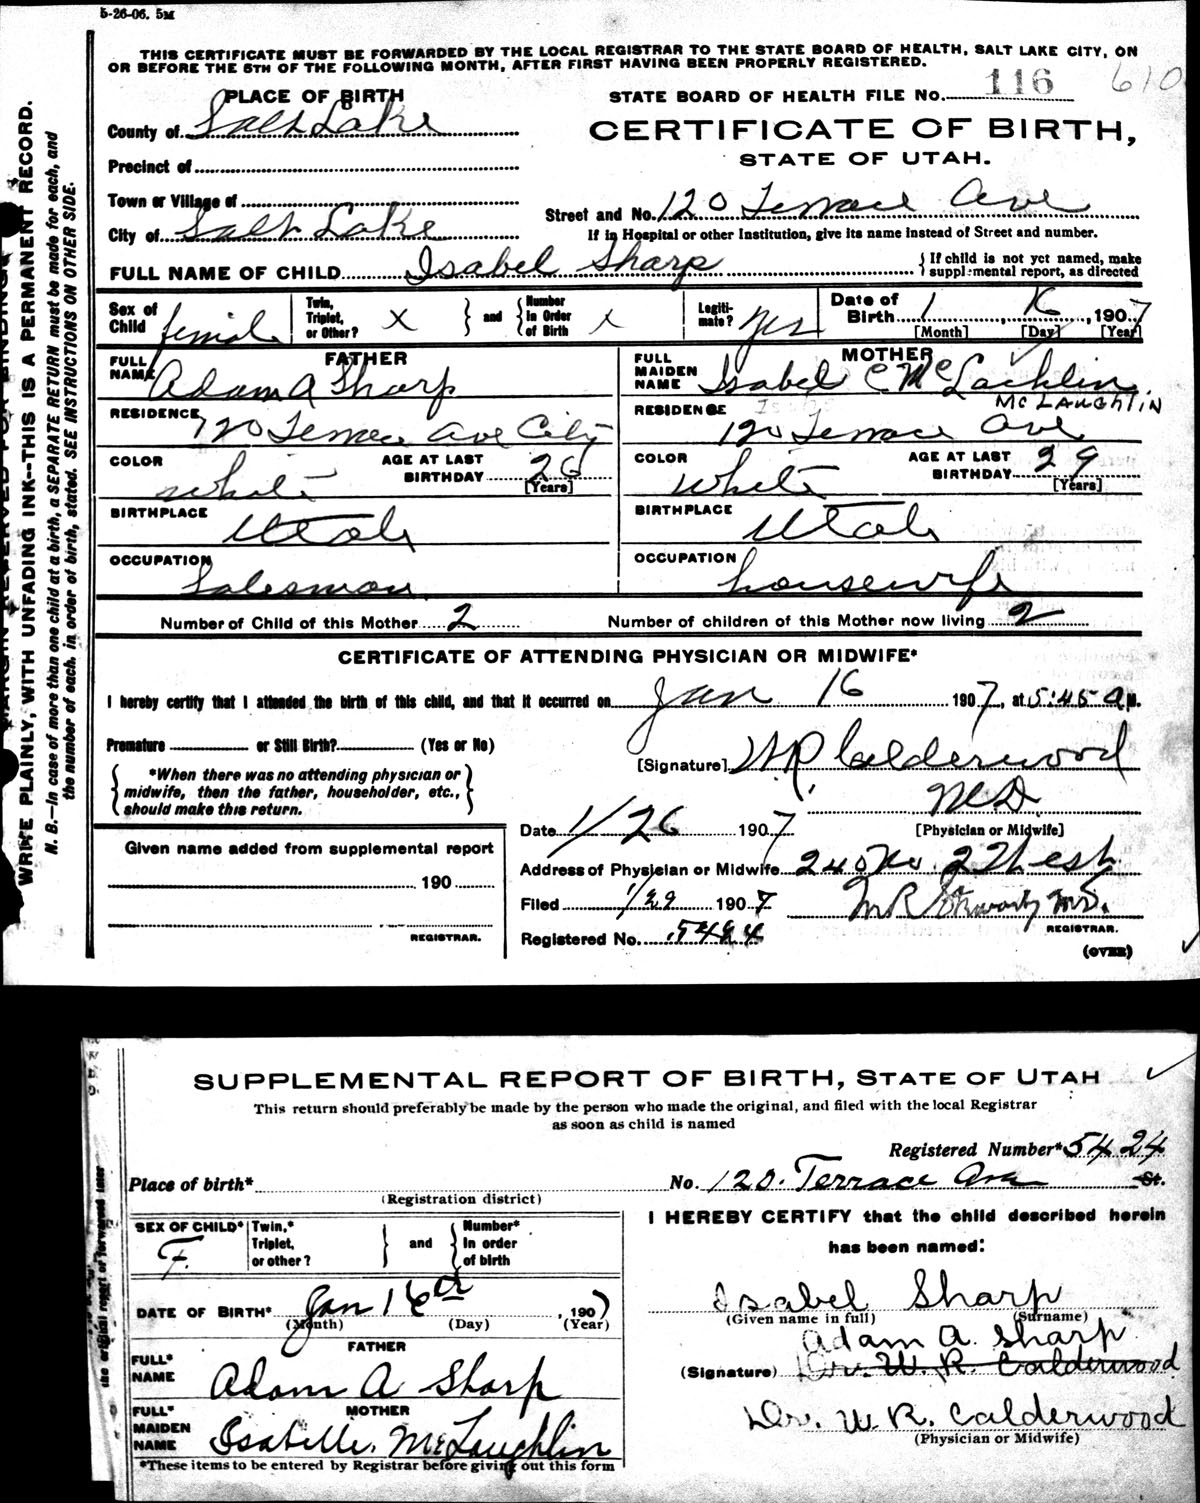 5-26-06. 5M
THIS CERTIFICATE MUST BE FORWARDED BY THE LOCAL REGISTRAR TO THE STATE BOARD OF HEALTH, SALT LAKE CITY, ON
OR BEFORE THE 5TH OF THE FOLLOWING MONTH, AFTER FIRST HAVING BEEN PROPERLY REGISTERED.
WRITE PLAINLY, WITH UNFADING INK--THIS IS A PERMANENT RECORD.
N. B.—In case of more than one child at a birth, a SEPARATE RETURN must be made for each, and
the number of each, in order of birth, stated. SEE INSTRUCTIONS ON OTHER SIDE.
STATE BOARD OF HEALTH FILE NO. 116 610
PLACE OF BIRTH
County of Salt Lake
CERTIFICATE OF BIRTH,
STATE OF UTAH.
Precinct of
Town or Village of
Street and No. 120 Terrace Ave
City of Salt Lake
If in Hospital or other Institution, give its name instead of Street and number.
FULL NAME OF CHILD Isabel Sharp
If child is not yet named, make
supplemental report, as directed
Sex of Child female
Twin, Triplet, or Other? X and Number in Order of Birth X
Legitimate? Yes
Date of Birth 1 16, 1907
[Month] [Day] [Year]
FATHER
FULL NAME Adam A Sharp
RESIDENCE 120 Terrace Ave City
COLOR white AGE AT LAST BIRTHDAY 26 [Years]
BIRTHPLACE Utah
OCCUPATION Salesman
MOTHER
FULL MAIDEN NAME Isabel C McLachlin
McLAUGHLIN
RESIDENCE 120 Terrace Ave
COLOR White AGE AT LAST BIRTHDAY 29 [Years]
BIRTHPLACE Utah
OCCUPATION housewife
Number of Child of this Mother 2 Number of children of this Mother now living 2
CERTIFICATE OF ATTENDING PHYSICIAN OR MIDWIFE*
I hereby certify that I attended the birth of this child, and that it occurred on Jan 16 1907, at 5:45 a M.
Premature or Still Birth? (Yes or No)
[Signature] W R Calderwood
*When there was no attending physician or
midwife, then the father, householder, etc.,
should make this return.
M D
Date 1/26 1907 [Physician or Midwife]
Given name added from supplemental report
190
REGISTRAR.
Address of Physician or Midwife 240
Filed 1/29 1907
REGISTRAR.
Registered No. 5424
(OVER)
SUPPLEMENTAL REPORT OF BIRTH, STATE OF UTAH
This return should preferably be made by the person who made the original, and filed with the local Registrar
as soon as child is named
Registered Number* 5424
Place of birth* No. 120 Terrace Ave St.
(Registration district)
SEX OF CHILD* F.
Twin,* Triplet, or other? and Number* in order of birth
DATE OF BIRTH* Jan 16th, 1907
(Month) (Day) (Year)
FATHER
FULL* NAME Adam A Sharp
MOTHER
FULL* MAIDEN NAME Isabelle McLaughlin
*These items to be entered by Registrar before giving out this form
I HEREBY CERTIFY that the child described herein
has been named:
Isabel Sharp
(Given name in full) (Surname)
Adam A. Sharp
(Signature) Dr. W. R. Calderwood
Dr. W. R. Calderwood
(Physician or Midwife)